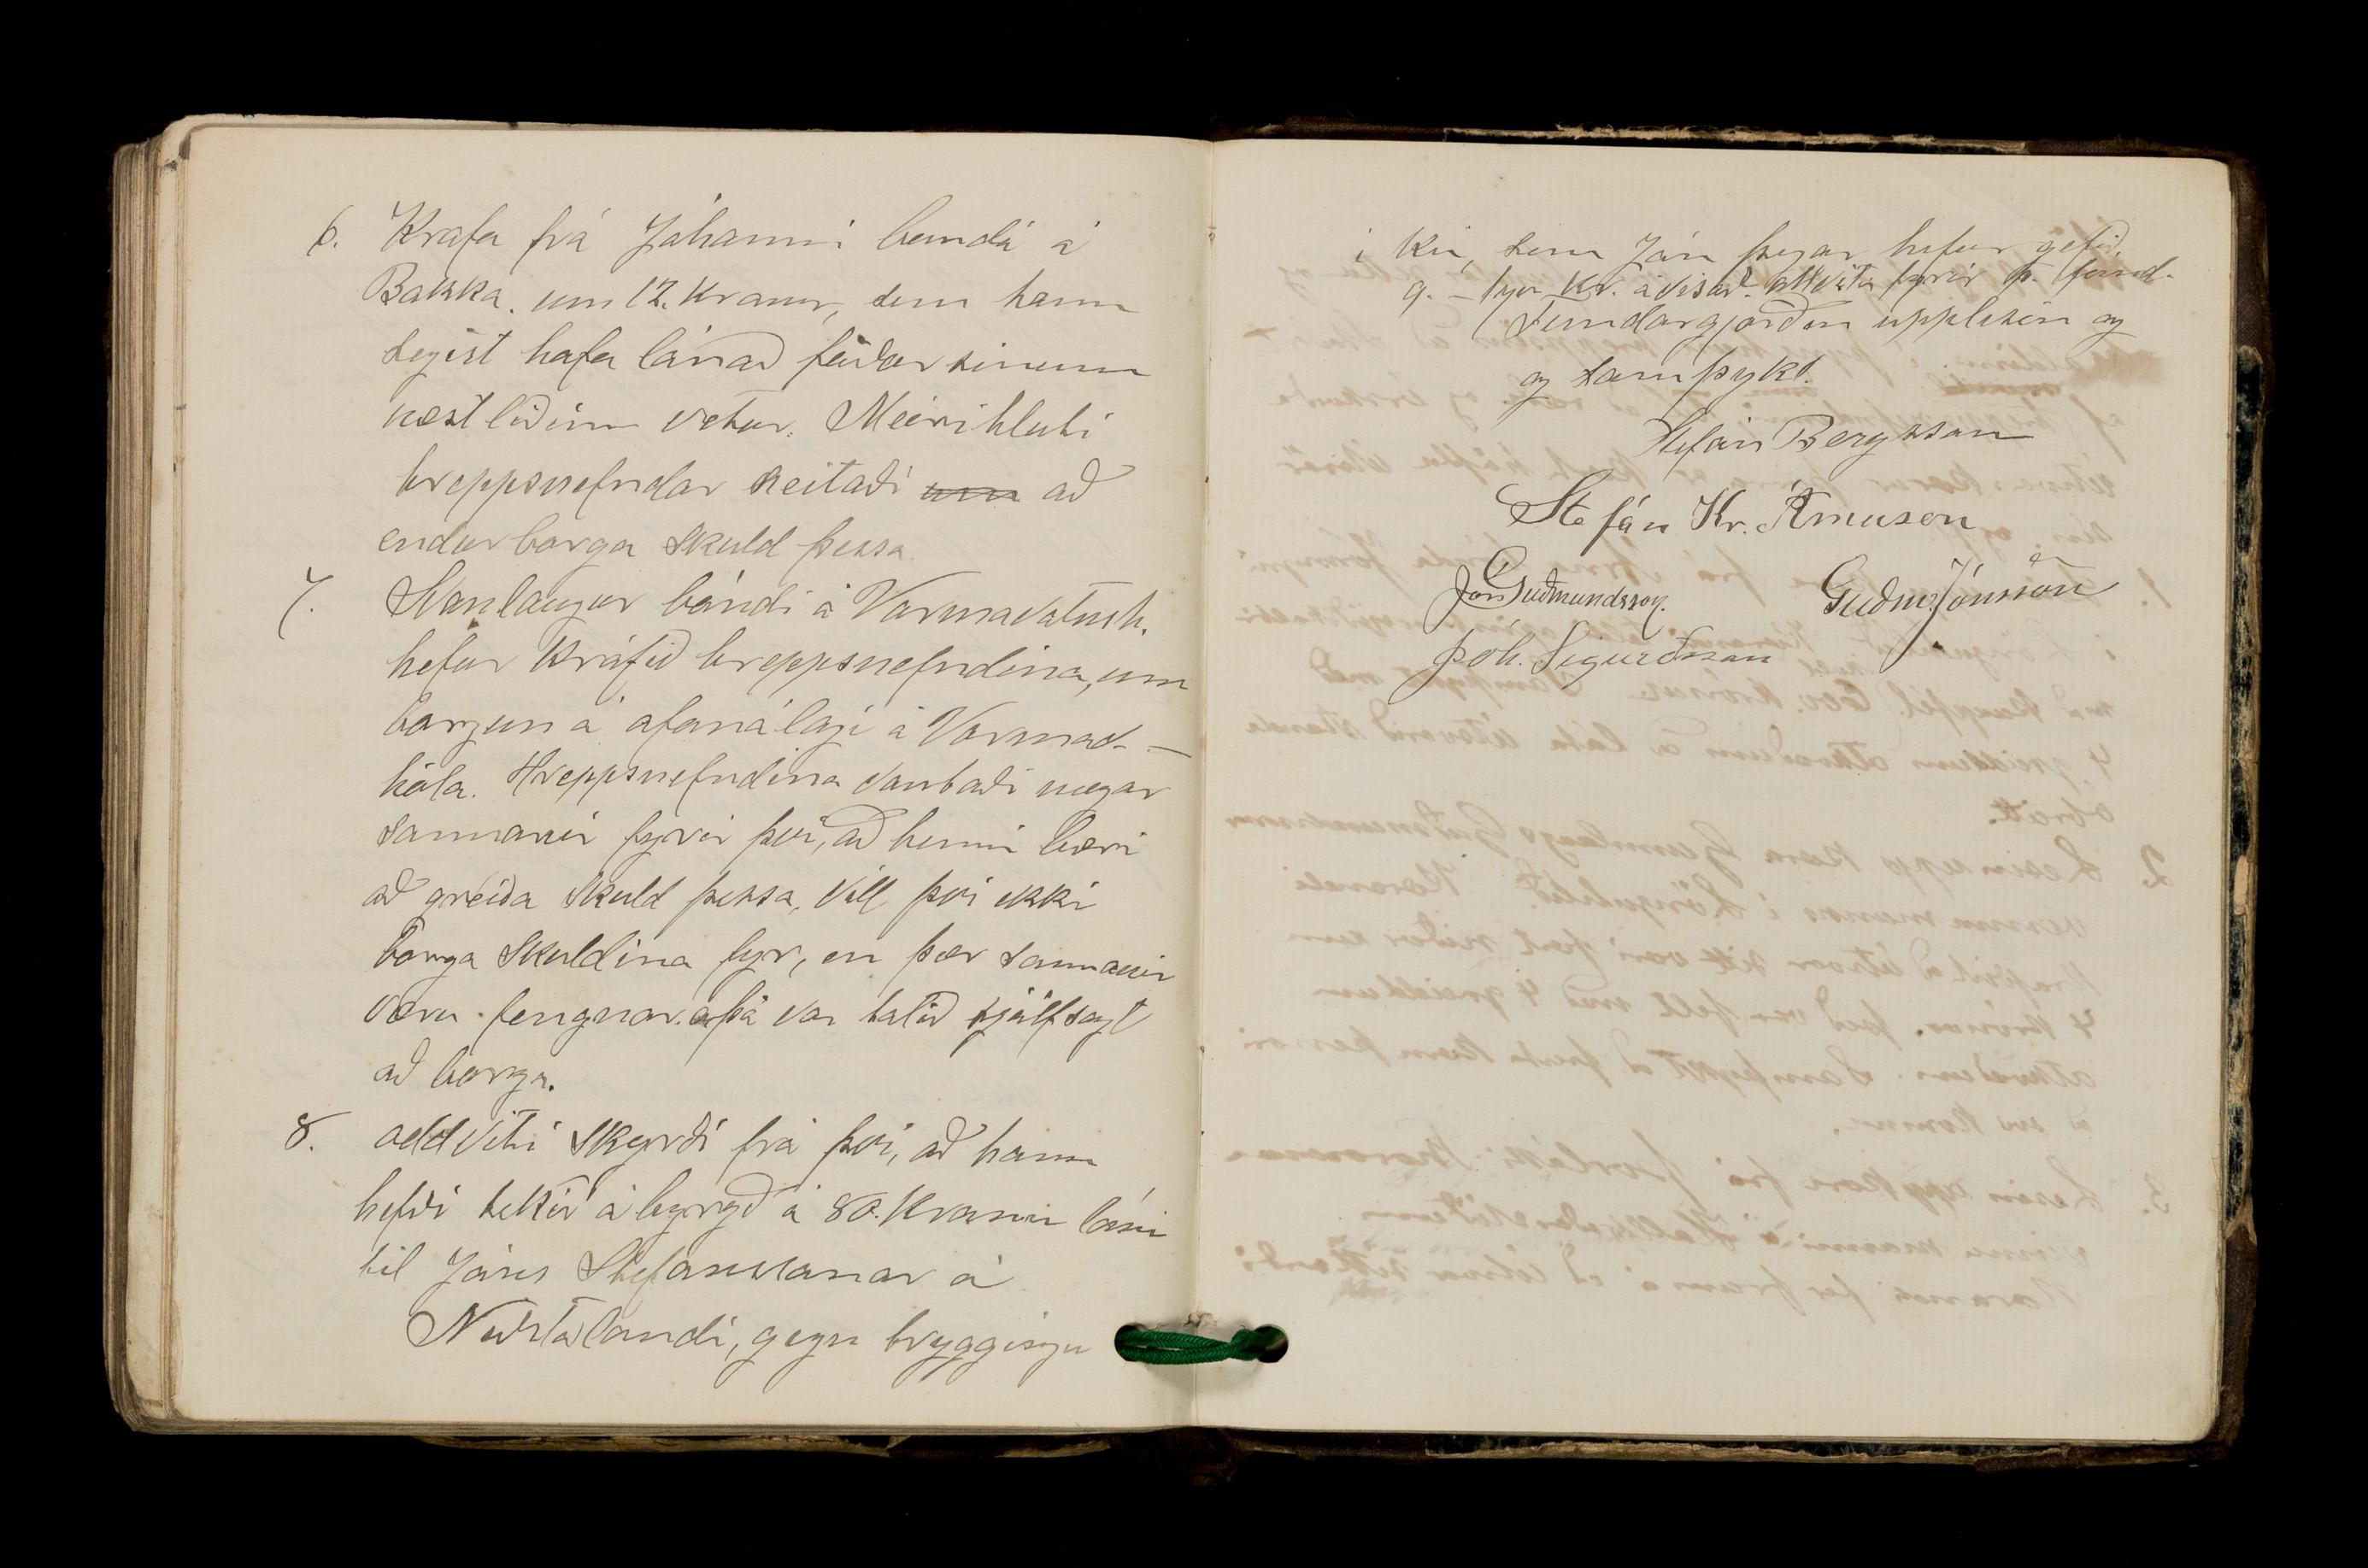 6. Krafa frá Jóhanni bónda á
Bakka. um 12. Kronur, sem hann
segist hafa lánað föður sínum
næstliðinn vetur. Meirihluti
hreppsnefndar neitaði um að
endurborga skuld þessa.
7. Stanlaugur bóndi á Varmavatnsh.
hefur krafið hreppsnefndina, um
borgun á ofanálagi á Varmav-
hóla. Hreppsnefndina vantaði nægar
sannanir fyrir því, að henni bæri
að greiða skuld þessa, vill því ekki
borga skuldina fyr, en þær sannanir
væru fengnar. þá var talið sjálfsagt
að borga.
8. oddviti skyrði frá því, að hann
hefði tekið ábyrgð á 80. Krónu láni
til Jóns Stefanssonar á
Neðstalandi, gegn tryggingu
í kú, sem Jón þegar hefur gefið.
9. Kr. ávisað oddvita fyrir þ. fund.
Fundargjorðin upplesin og
og samþykt.
Stefán Bergsson
Stefán Kr. Árnason
Jón Guðmundsson. Guðm. Jónsson
Jóh. Sigurðsson